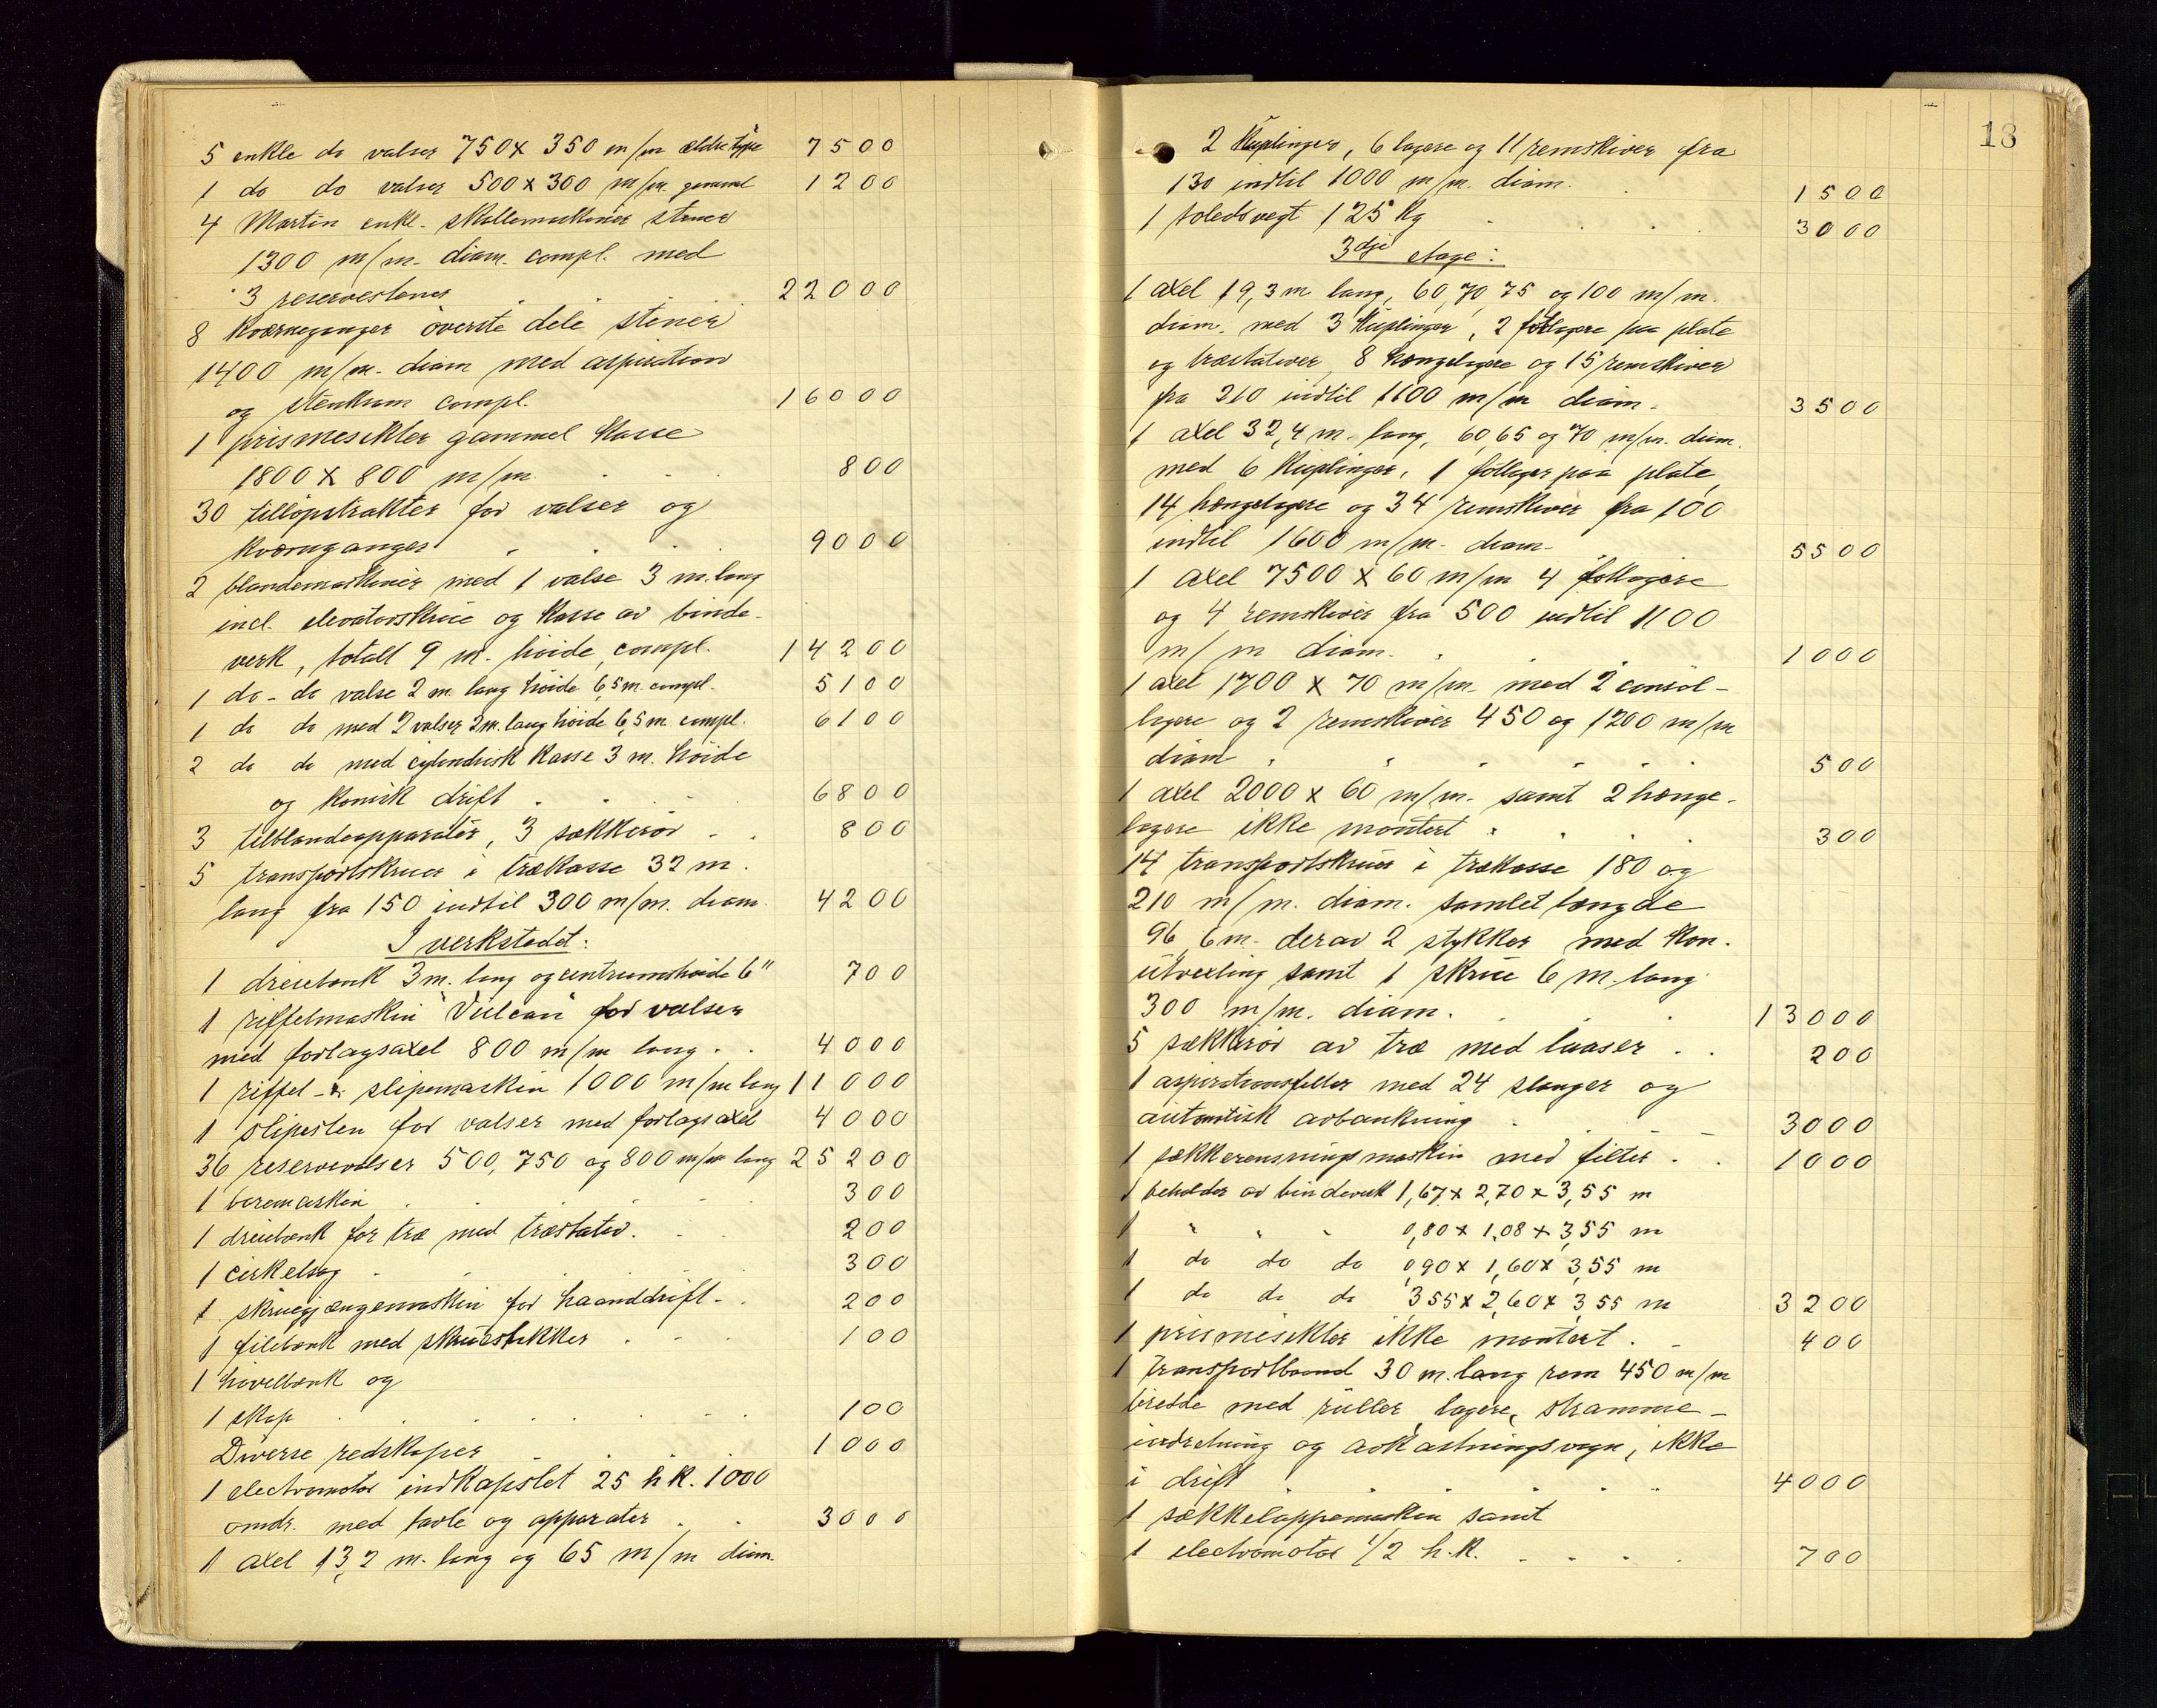 5 enkle do valser 750 x 350 m/m ældre type 7500
1 do do valser 500 x 300 m/m. gammel 1200
4 Martin enk. skallemaskiner stener
1300 m/m. diam. compl. med
3 reservestener 22000
8 kværneganger överste dele stener
1400 m/m. diam med aspiration
og stenkran compl. 16000
1 prismesikter gammel kasse
1800 x 800 m/m 800
30 tillöpstrakter for valser og
kværnganger 9000
2 blandemaskiner med 1 valse 3 m. lang
incl. elevatorskrue og kasse av binde-
verk, totalt 9 m. höide, compl. 14200
1 do - do valse 2 m. lang höide 6,5 m. compl. 5100
1 do do med 2 valser 2 m. lang höide 6,5 m. compl. 6100
2 do do med cylendrisk kasse 3 m. höide
og konisk drift 6800
3 tilblandeapparater, 3 sækkerör 800
5 transportskruer i trækasse 32 m.
lang fra 150 indtil 300 m/m. diam. 4200
I verkstedet:
1 dreiebænk 3 m. lang og centrumshöide 6" 700
1 riffelmaskin "Vulcan" for valser
med forlagsaxel 800 m/m lang 4000
1 riffel - & slipemaskin 1000 m/m lang 11000
1 slipesten for valser med forlagsaxel 4000
36 reservevalser 500, 750 og 800 m/m lang 25200
1 boremaskin 300
1 dreiebænk for træ med træstativ. 200
1 cirkelsag 300
1 skruegjængemaskin for haanddrift 200
1 filebænk med skruestikker 100
1 hövelbænk og
1 skap 100
Diverse redskaper 1000
1 electromotor indkapslet 25 h.k. 1000
omdr. med tavle og apparater 3000
1 axel 13,2 m. lang og 65 m/m diam.
18
2 kuplinger, 6 lagere og 11 remskiver fra
130 indtil 1000 m/m. diam. 1500
1 toledovegt 125 kg 3000
3dje etage:
1 axel 19,3 m lang, 60, 70 75 og 100 m/m.
diam. med 3 kuplinger, 2 fotlagere paa plate
og træstativer, 8 hængelagere og 15 remskiver
fra 210 indtil 1600 m/m diam. 3500
1 axel 32,4 m. lang, 60, 65 og 70 m/m. diam.
med 6 kuplinger, 1 fotlager paa plate,
14 hængelagere og 34 remskiver fra 100
indtil 1600 m/m. diam. 5500
1 axel 7500 x 60 m/m 4 fotlagere
og 4 remskiver fra 500 indtil 1100
m/m diam. 1000
1 axel 1700 x 70 m/m. med 2 consol-
lagere og 2 remskiver 450 og 1200 m/m
diam 500
1 axel 2000 x 60 m/m. samt 2 hænge-
lagere ikke montert 300
14 transportskruer i trækasse 180 og
210 m/m. diam. samlet længde
96,6 m. derav 2 stykker med kon.
utvexling samt 1 skrue 6 m. lang
300 m/m. diam. 13000
5 sækkerör av træ med laaser 200
1 aspirationsfilter med 24 slanger og
automatisk avbankning 3000
1 sækkerensningsmaskin med filter 1000
1 beholder av bindeverk 1,67 x 2,70 x 3,55 m
1 " " " 0,80 x 1,08 x 3,55 m
1 do do do 0,90 x 1,60 x 3,55 m
1 do do do 3,55 x 2,60 x 3,55 m 3200
1 prismesikter ikke montert 400
1 transportbaand 30 m. lang rem 450 m/m
bredde med ruller, lagere, stramme-
indretning og avkastningsvogn, ikke
i drift 4000
1 sækkelappemaskin samt
1 electromotor 1/2 h.k. 700